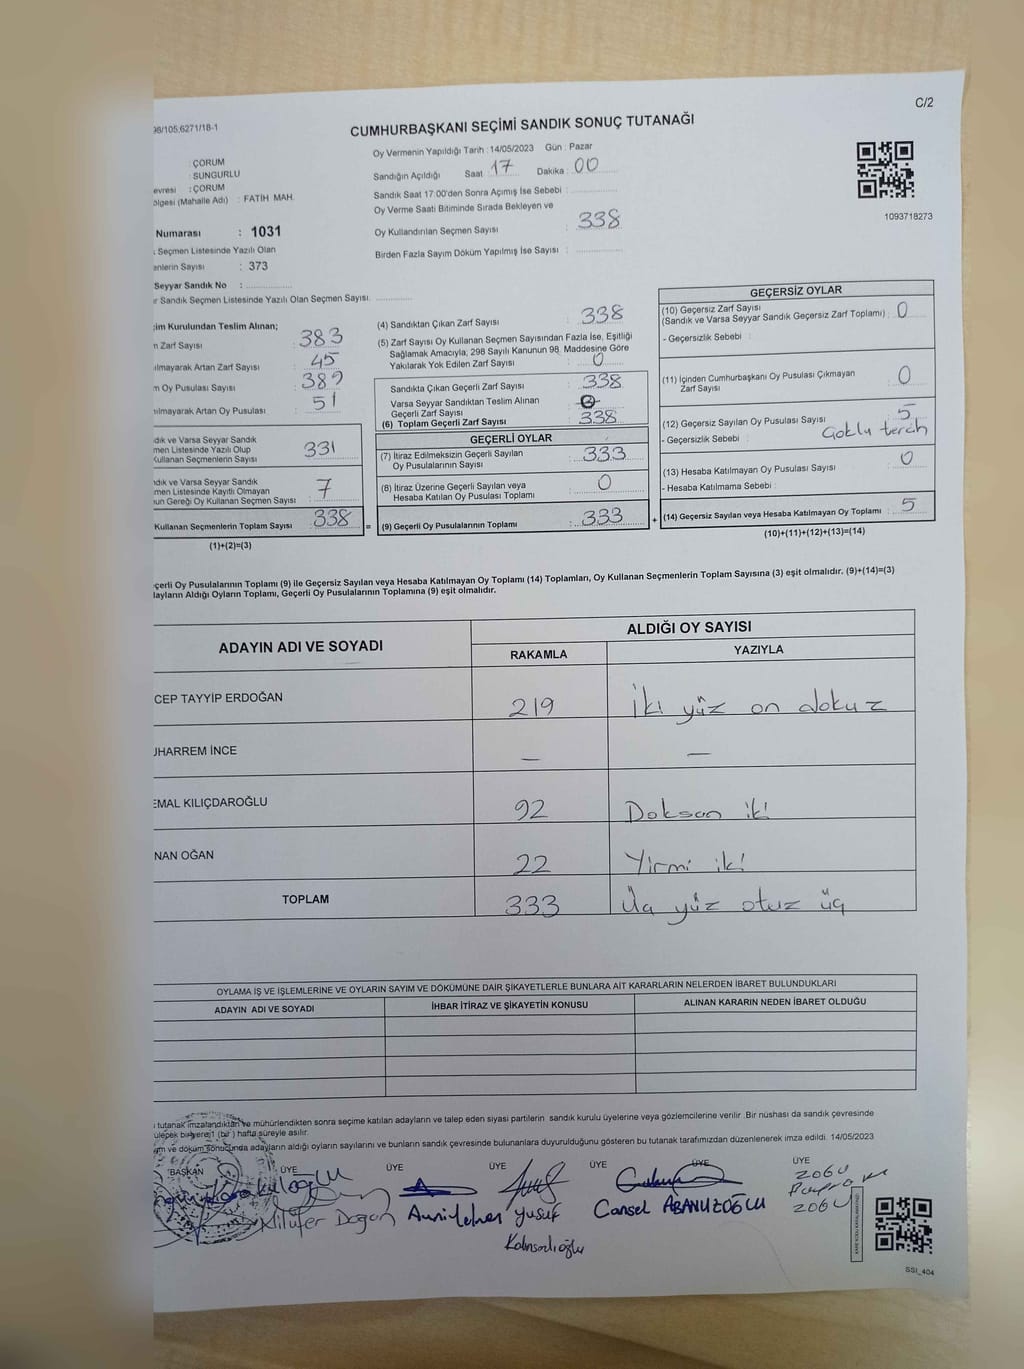 C/2
98/105;6271/18-1
CUMHURBAŞKANI SEÇİMİ SANDIK SONUÇ TUTANAĞI
: ÇORUM
: SUNGURLU
evresi : ÇORUM
ölgesi (Mahalle Adı) : FATİH MAH.
Numarası : 1031
Seçmen Listesinde Yazılı Olan
enlerin Sayısı : 373
Seyyar Sandık No :
r Sandık Seçmen Listesinde Yazılı Olan Seçmen Sayısı:
Oy Vermenin Yapıldığı Tarih : 14/05/2023 Gün : Pazar
Sandığın Açıldığı Saat : 17 Dakika : 00
Sandık Saat 17:00'den Sonra Açımış İse Sebebi :
Oy Verme Saati Bitiminde Sırada Bekleyen ve
Oy Kullandırılan Seçmen Sayısı : 338
Birden Fazla Sayım Döküm Yapılmış İse Sayısı :
1093718273
im Kurulundan Teslim Alınan;
n Zarf Sayısı : 383
ılmayarak Artan Zarf Sayısı : 45
m Oy Pusulası Sayısı : 389
ılmayarak Artan Oy Pusulası : 51
dık ve Varsa Seyyar Sandık
men Listesinde Yazılı Olup
Kullanan Seçmenlerin Sayısı : 331
ndık ve Varsa Seyyar Sandık
men Listesinde Kayıtlı Olmayan
un Gereği Oy Kullanan Seçmen Sayısı : 7
Kullanan Seçmenlerin Toplam Sayısı : 338
(1)+(2)=(3)
(4) Sandıktan Çıkan Zarf Sayısı : 338
(5) Zarf Sayısı Oy Kullanan Seçmen Sayısından Fazla İse, Eşitliği
Sağlamak Amacıyla, 298 Sayılı Kanunun 98. Maddesine Göre
Yakılarak Yok Edilen Zarf Sayısı : 0
Sandıkta Çıkan Geçerli Zarf Sayısı : 338
Varsa Seyyar Sandıktan Teslim Alınan
Geçerli Zarf Sayısı :
(6) Toplam Geçerli Zarf Sayısı : 338
GEÇERLİ OYLAR
(7) İtiraz Edilmeksizin Geçerli Sayılan
Oy Pusulalarının Sayısı : 333
(8) İtiraz Üzerine Geçerli Sayılan veya
Hesaba Katılan Oy Pusulası Toplamı : 0
= (9) Geçerli Oy Pusulalarının Toplamı : 333
GEÇERSİZ OYLAR
(10) Geçersiz Zarf Sayısı
(Sandık ve Varsa Seyyar Sandık Geçersiz Zarf Toplamı) : 0
- Geçersizlik Sebebi :
(11) İçinden Cumhurbaşkanı Oy Pusulası Çıkmayan
Zarf Sayısı : 0
(12) Geçersiz Sayılan Oy Pusulası Sayısı : 5
- Geçersizlik Sebebi : Çoklu tercih
(13) Hesaba Katılmayan Oy Pusulası Sayısı : 0
- Hesaba Katılmama Sebebi :
+ (14) Geçersiz Sayılan veya Hesaba Katılmayan Oy Toplamı : 5
(10)+(11)+(12)+(13)=(14)
çerli Oy Pusulalarının Toplamı (9) ile Geçersiz Sayılan veya Hesaba Katılmayan Oy Toplamı (14) Toplamları, Oy Kullanan Seçmenlerin Toplam Sayısına (3) eşit olmalıdır. (9)+(14)=(3)
layların Aldığı Oyların Toplamı, Geçerli Oy Pusulalarının Toplamına (9) eşit olmalıdır.
ADAYIN ADI VE SOYADI
ALDIĞI OY SAYISI
RAKAMLA YAZIYLA
CEP TAYYİP ERDOĞAN 219 İki yüz on dokuz
UHARREM İNCE — —
EMAL KILIÇDAROĞLU 92 Doksan iki
NAN OĞAN 22 Yirmi iki
TOPLAM 333 Üç yüz otuz üç
OYLAMA İŞ VE İŞLEMLERİNE VE OYLARIN SAYIM VE DÖKÜMÜNE DAİR ŞİKAYETLERLE BUNLARA AİT KARARLARIN NELERDEN İBARET BULUNDUKLARI
ADAYIN ADI VE SOYADI İHBAR İTİRAZ VE ŞİKAYETİN KONUSU ALINAN KARARIN NEDEN İBARET OLDUĞU
tutanak imzalandıktan ve mühürlendikten sonra seçime katılan adayların ve talep eden siyasi partilerin sandık kurulu üyelerine veya gözlemcilerine verilir .Bir nüshası da sandık çevresinde
ülecek bir yere 1 (bir ) hafta süreyle asılır.
ım ve döküm sonucunda adayların aldığı oyların sayılarını ve bunların sandık çevresinde bulunanlara duyurulduğunu gösteren bu tutanak tarafımızdan düzenlenerek imza edildi. 14/05/2023
BAŞKAN ÜYE ÜYE ÜYE ÜYE ÜYE ÜYE
Nilüfer Doğan
Yusuf
Cansel ABANUZOĞLU
SSI_404